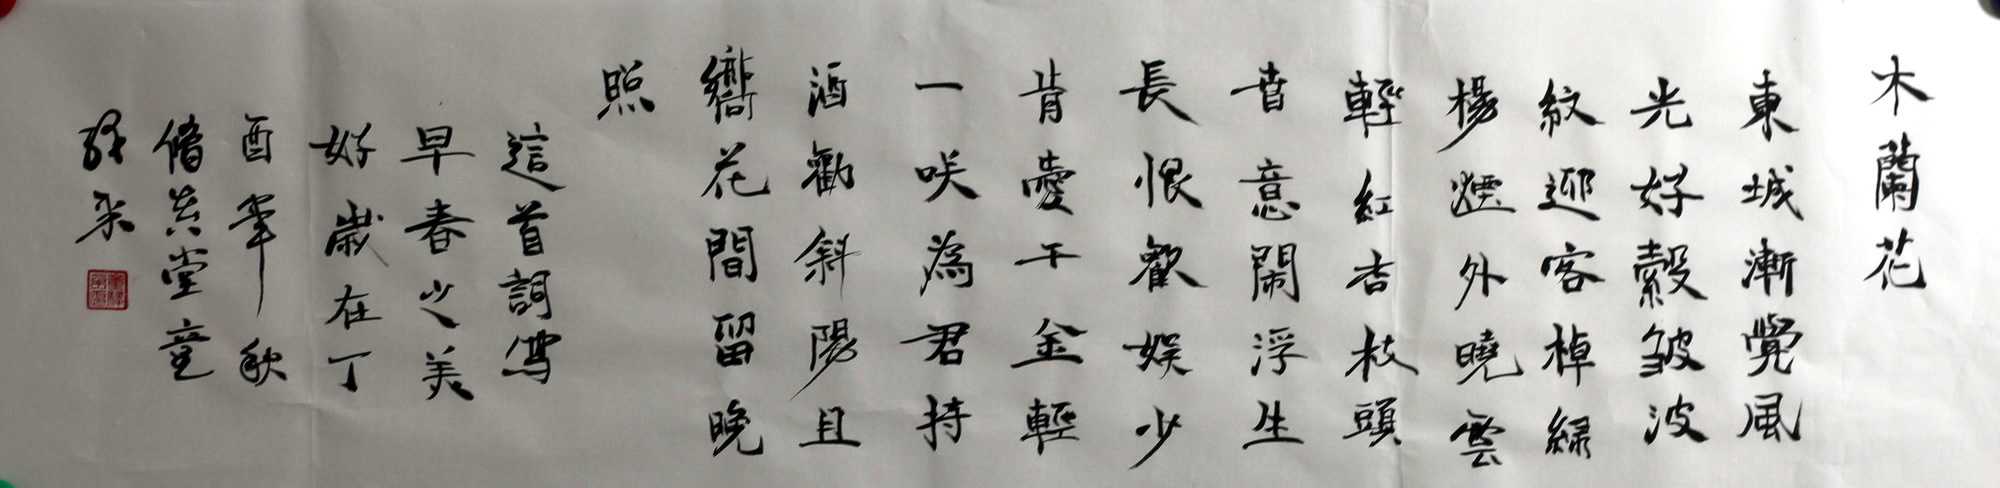 木蘭花
東城漸覺風
光好縠皺波
紋迎客棹綠
楊煙外曉雲
輕紅杏枝頭
旾意鬧浮生
長恨歡娛少
肯愛千金輕
一咲為君持
酒勸斜陽且
嚮花間留晚
照
這首詞寫
早春之美
好歲在丁
酉年秋
堂童